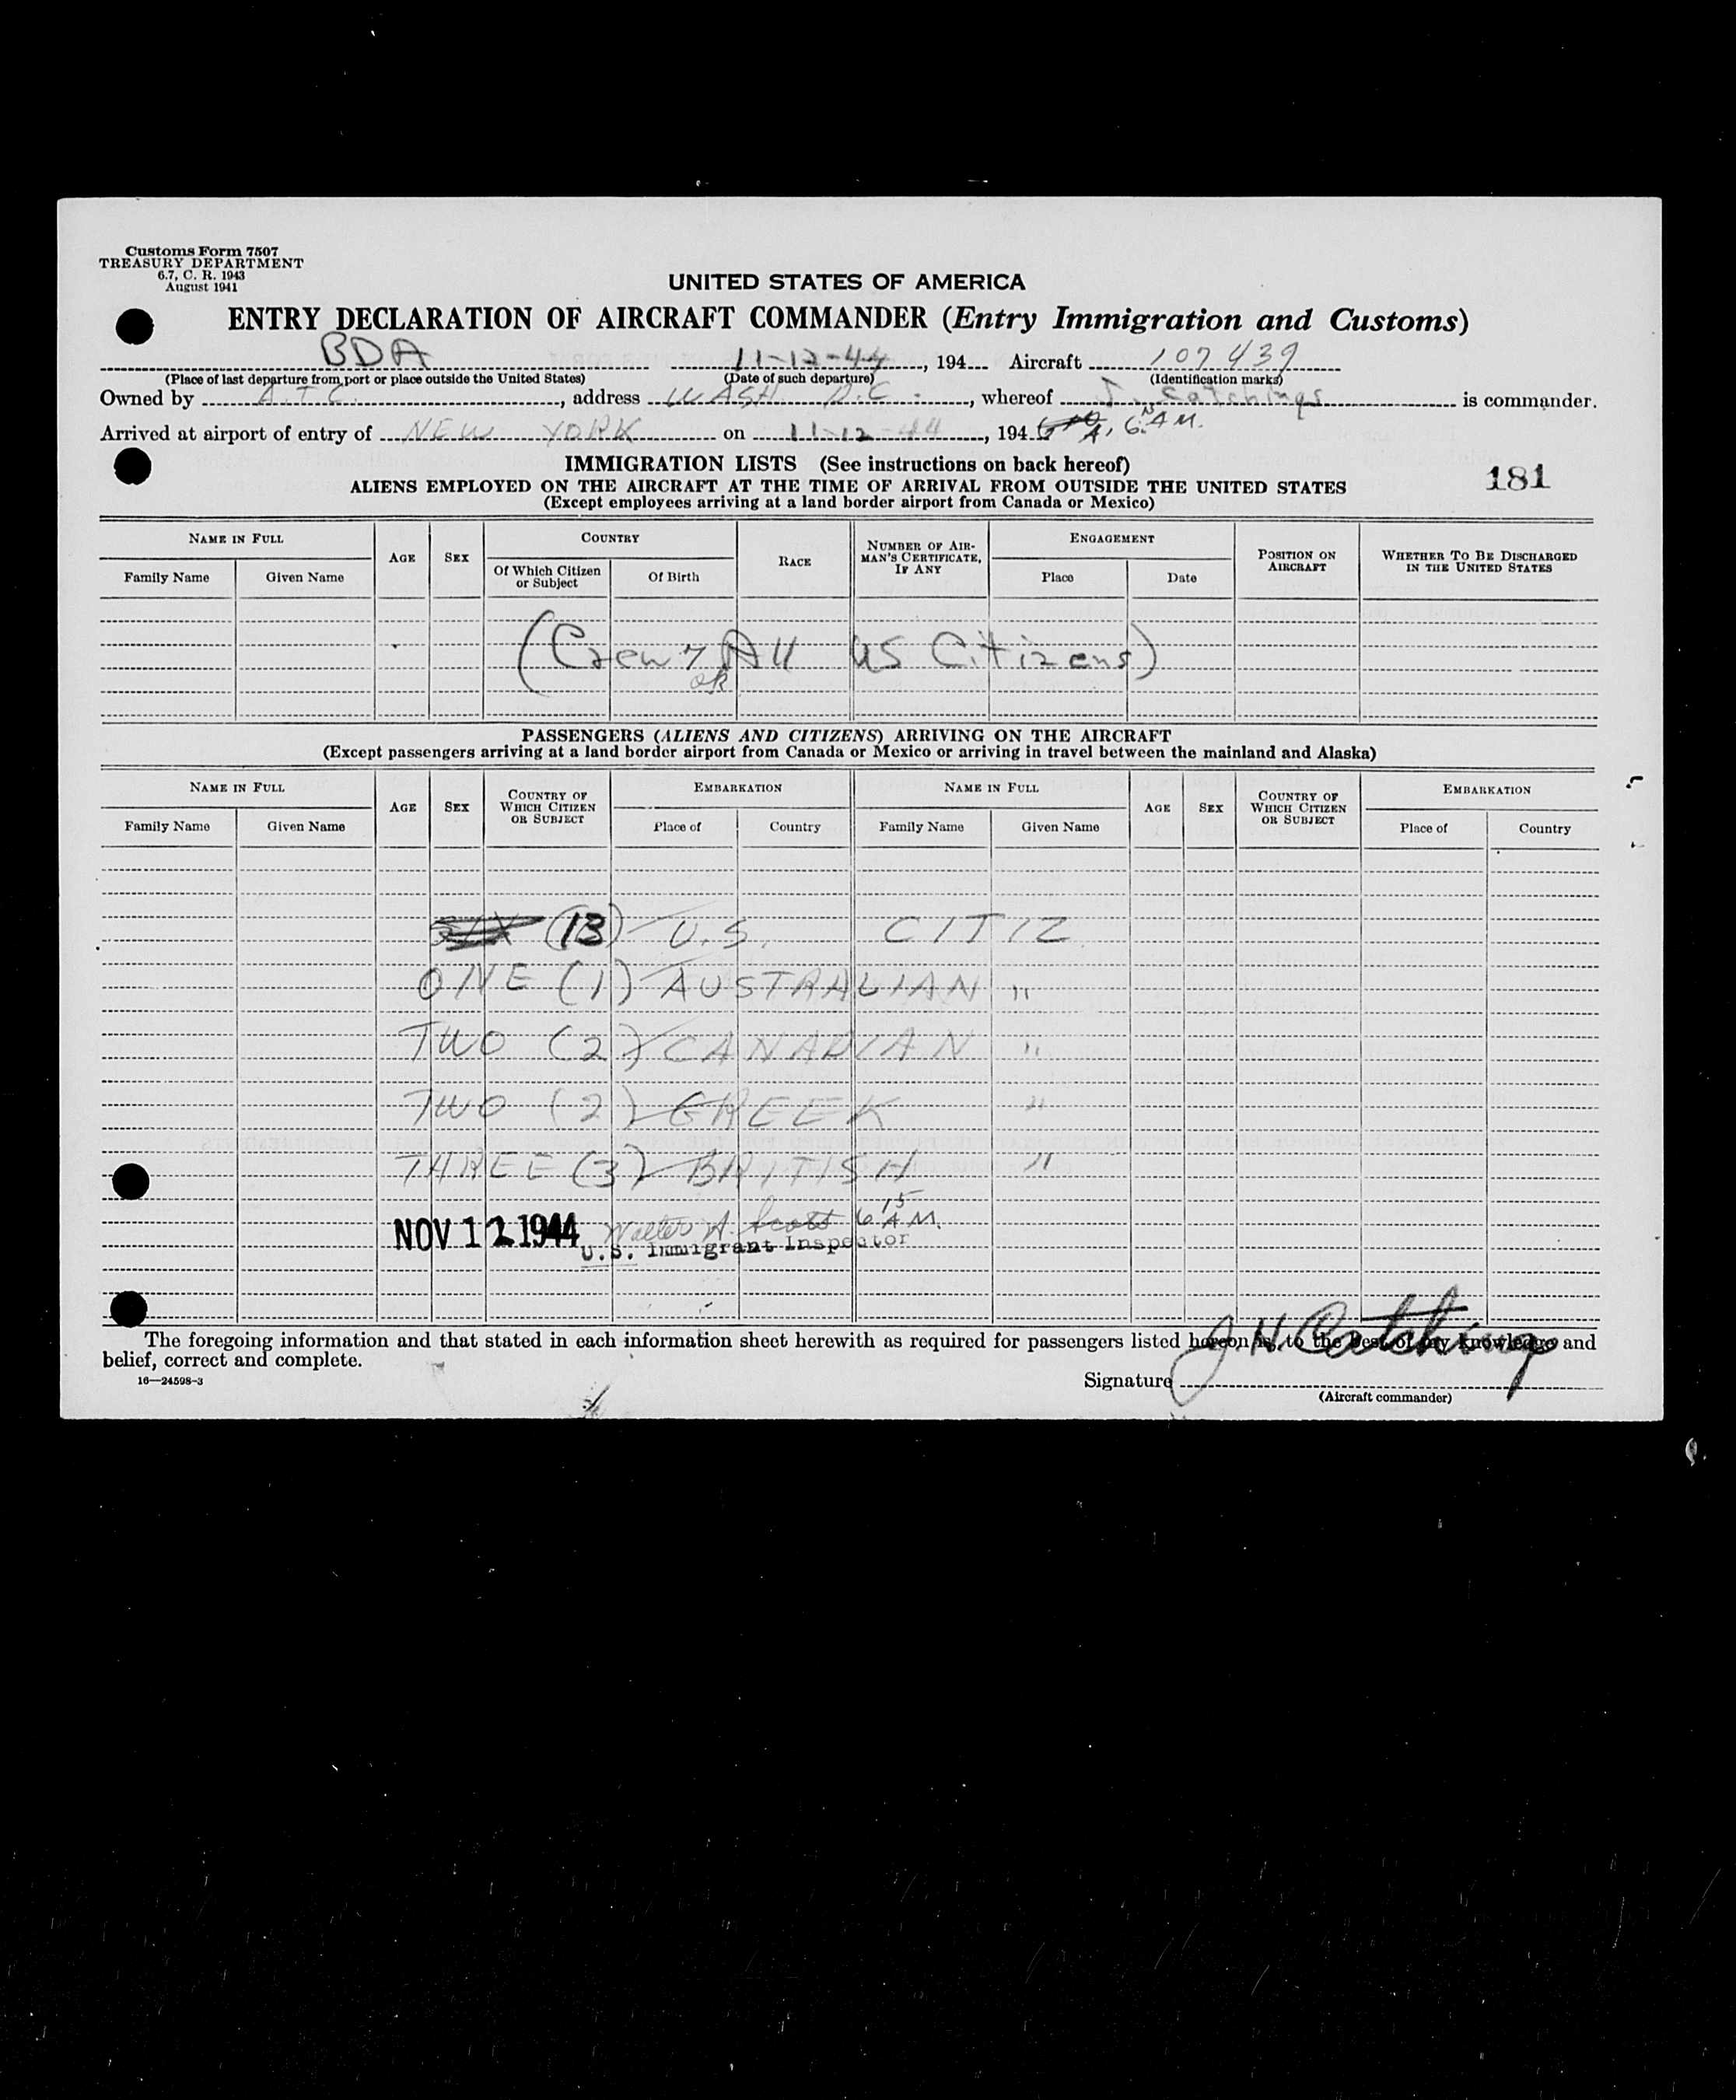 Customs Form 7507
TREASURY DEPARTMENT
6.7, C. R. 1943
August 1941
UNITED STATES OF AMERICA
ENTRY DECLARATION OF AIRCRAFT COMMANDER (Entry Immigration and Customs)
BDA 11-12-44, 194 Aircraft 107439
(Place of last departure from port or place outside the United States) (Date of such departure) (Identification marks)
Owned by A.T.C., address WASH D.C., whereof J. Catchings is commander.
Arrived at airport of entry of NEW YORK on 11-12-44, 194 A.M.
IMMIGRATION LISTS (See instructions on back hereof)
181
ALIENS EMPLOYED ON THE AIRCRAFT AT THE TIME OF ARRIVAL FROM OUTSIDE THE UNITED STATES
(Except employees arriving at a land border airport from Canada or Mexico)
NAME IN FULL AGE SEX COUNTRY RACE NUMBER OF AIRMAN'S CERTIFICATE, IF ANY ENGAGEMENT POSITION ON AIRCRAFT WHETHER TO BE DISCHARGED IN THE UNITED STATES
Family Name Given Name Of Which Citizen or Subject Of Birth Place Date
(Crew 7 All US Citizens)
ok
PASSENGERS (ALIENS AND CITIZENS) ARRIVING ON THE AIRCRAFT
(Except passengers arriving at a land border airport from Canada or Mexico or arriving in travel between the mainland and Alaska)
NAME IN FULL AGE SEX COUNTRY OF WHICH CITIZEN OR SUBJECT EMBARKATION NAME IN FULL AGE SEX COUNTRY OF WHICH CITIZEN OR SUBJECT EMBARKATION
Family Name Given Name Place of Country Family Name Given Name Place of Country
(13) U.S. CITIZ
ONE (1) AUSTRALIAN "
TWO (2) CANADIAN "
TWO (2) GREEK "
THREE (3) BRITISH "
NOV 12 1944 Walter A. Scott 6 15 A.M.
U.S. Immigrant Inspector
The foregoing information and that stated in each information sheet herewith as required for passengers listed hereon is, to the best of my knowledge and
belief, correct and complete.
16—24598-3
Signature J H Catchings
(Aircraft commander)